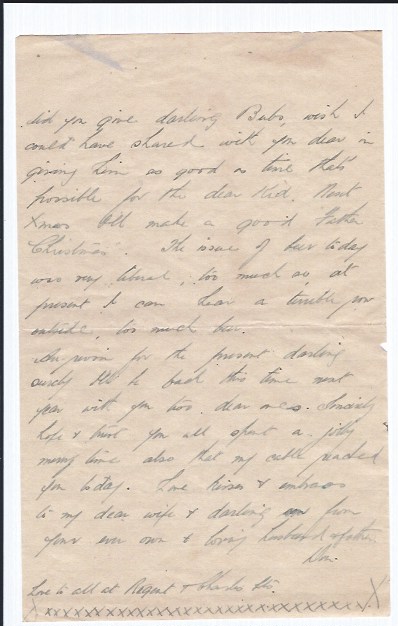 did you give darling Bubs, wish I
could have shared with you dear in
giving him as good as time that's
possible for the dear Kid. Next
Xmas I'll make a good Father
Christmas. The issue of beer today
was very liberal, too much as at
present I can hear a terrible row
outside, too much beer.
for the present darling
surely I'll be back this time next
year with you two dear ones. Sincerely
hope & trust you all spent a jolly
merry time also that my cable reached
you today. Love kisses & embraces
to my dear wife & darling from
your ever own & loving husband & father
Don.
Love to all at Regent & Charles Sts.
X xxxxxxxxxxxxxxxxxxxxxxxxxxx X